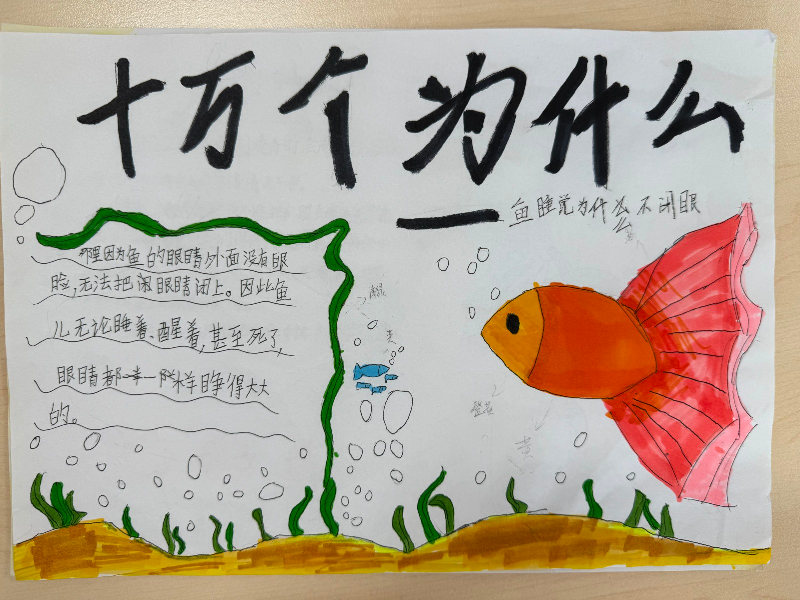 十万个为什么
——鱼睡觉为什么不闭眼
那是因为鱼的眼睛外面没有眼
脸,无法把闭眼睛闭上。因此鱼
儿无论睡着、醒着,甚至死了,
眼睛都一样睁得大大
的。